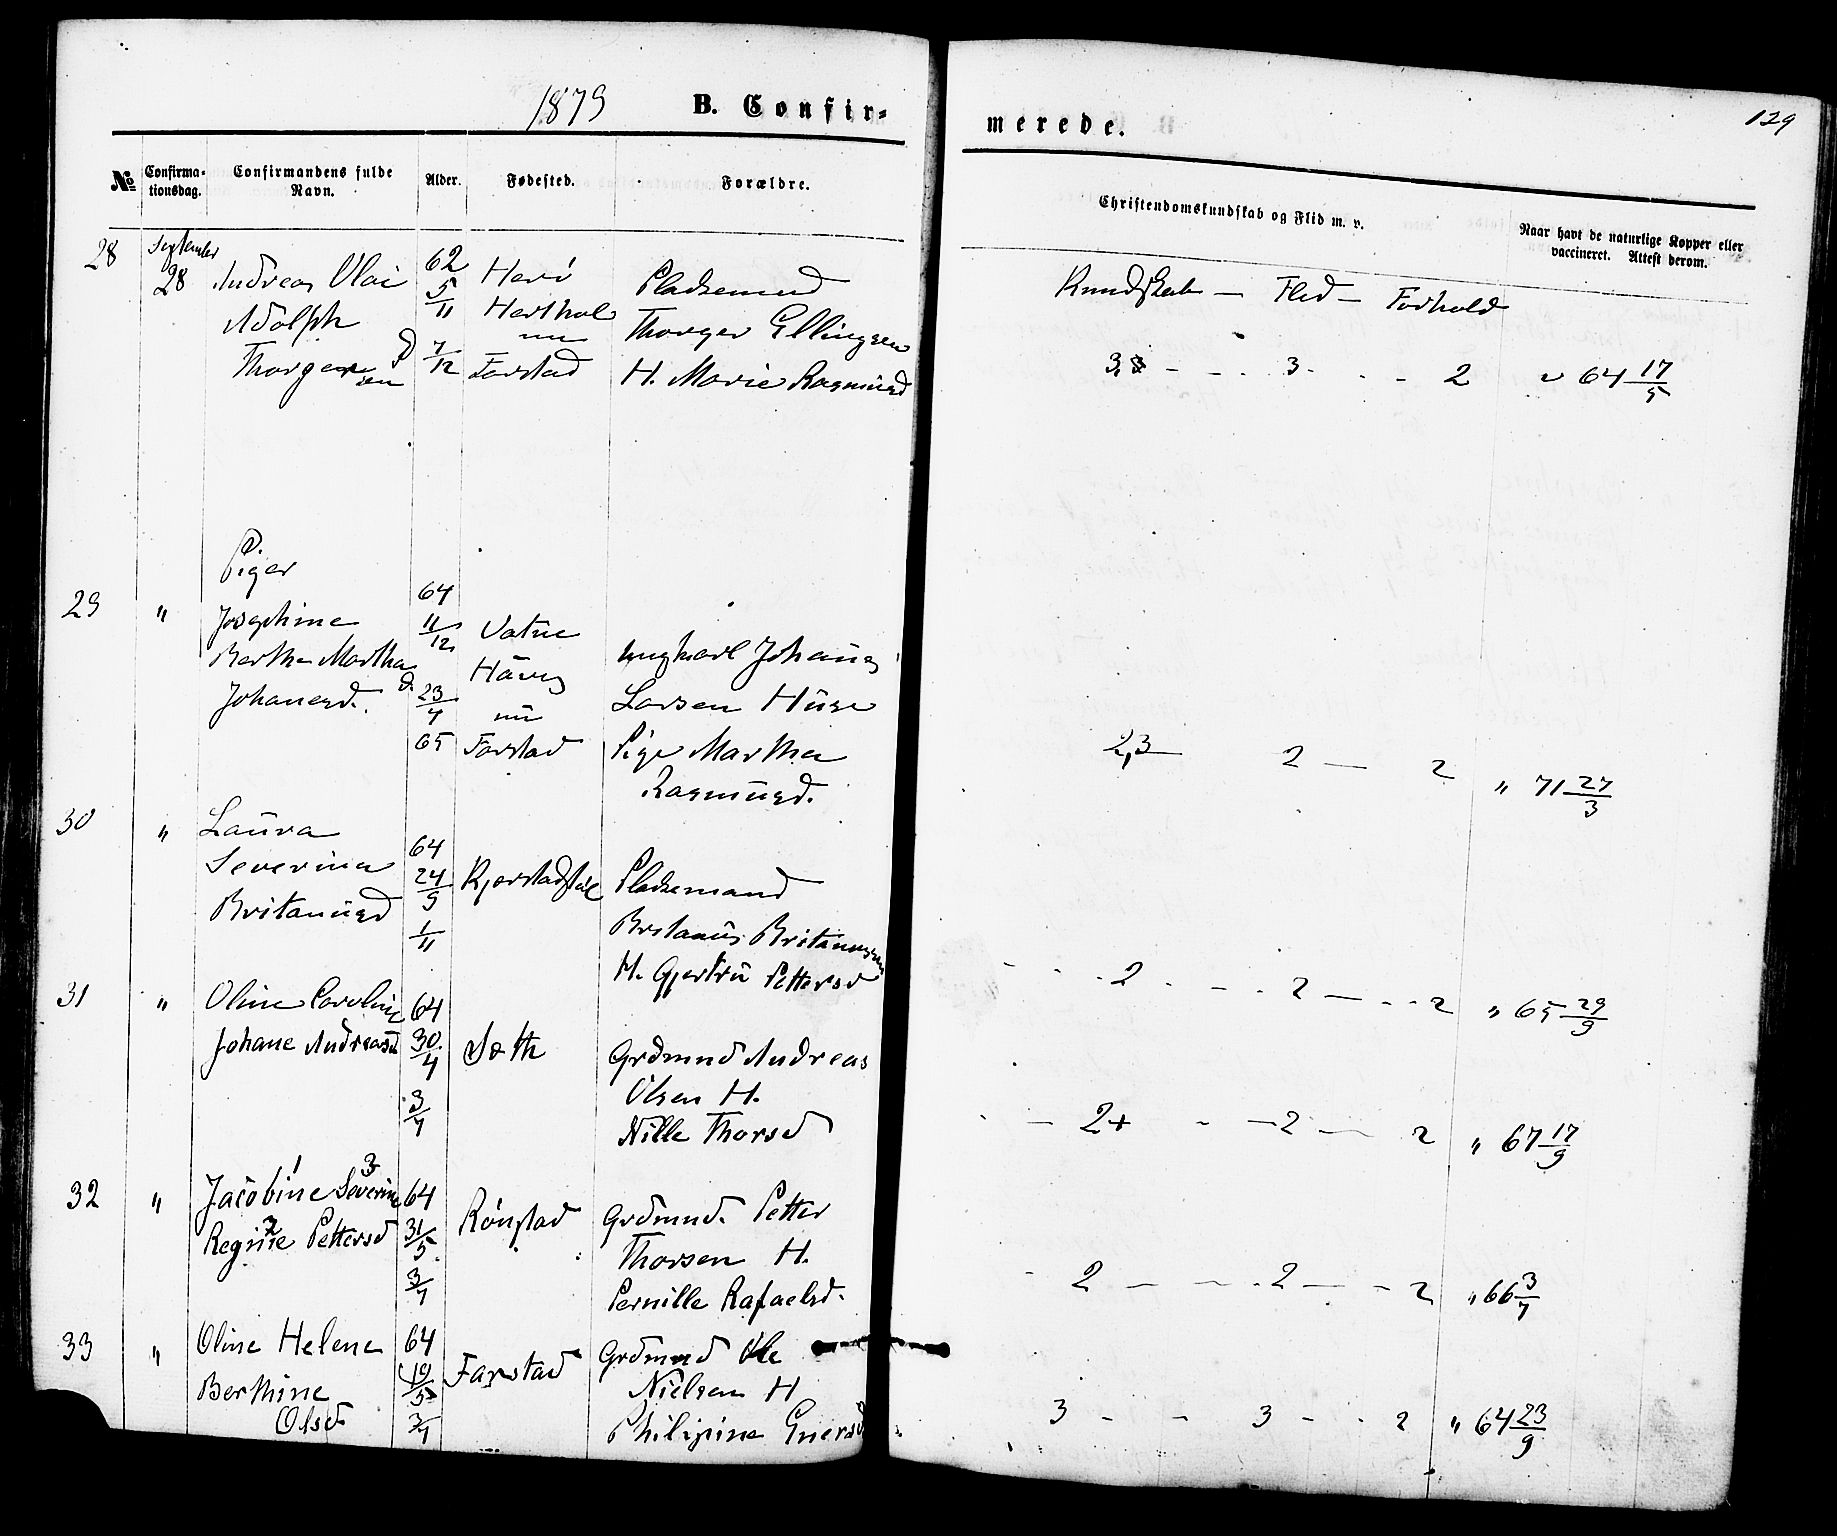 1879
B. Confir-
merede.
129
№
Confirma-
tionsdag.
Confirmandens fulde
Navn.
Alder.
Fødested.
Forældre.
Christendomskundskab og Flid m. v.
Naar havt de naturlige Kopper eller
vaccineret. Attest derom.
Kundskab — Flid — Forhold
28
September
28
Andreas Olai
Adolph
Thorgersen
62
5/11
7/12
Harø
nu
Farstad
Pladsemand
Thorger Ellingsen
H. Marie Rasmusd
3,3 - - - 3 - - - 2
64 17/5
Piger
29
"
Josephine
Berthe Martha
Johanesd.
64
11/12
23/4
65
Vatne
nu
Farstad
ungkarl Johanes
Larsen Huse
Pige Martha
Rasmusd.
2,3 — 2 — 2
" 71 27/3
30
"
Laura
Severina
Britanusd
64
24/9
1/11
Pladsemand
Britanus Britanussen
H. Gjertru Pettersd
- - - 2 - - - 2 — - - 2
" 65 29/9
31
"
Oline Caroline
Johane Andreasd
64
30/4
3/7
Sæth
Grdmand Andreas
Olsen H.
Nille Thorsd
- — 2+ - — 2 — 2
" 67 17/9
32
"
Jacobine Severine
Regine Pettersd
64
31/5
3/7
Rønstad
Grdmnd. Petter
Thorsen H.
Pernille Rafaelsd.
- 2 — - - 2 — - 2
" 66 3/7
33
"
Oline Helene
Berthine
Olsd
64
19/5
3/7
Farstad
Grdmnd Ole
Nielsen H
Philipine Enersd
3 - - 3 - - 2
" 64 23/9